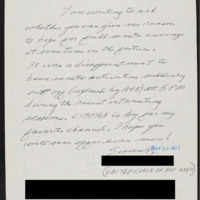 I am writing to ask
whether you can give me reason
to hope for full senate coverage
at some time in the future.
It was a disappointment to
have senate activities suddenly
cut off (replaced by H of R) at 5 P.M
during the recent interesting
sessions. C-SPAN is by far my
favorite channel. I hope you
more!
Sincerely,